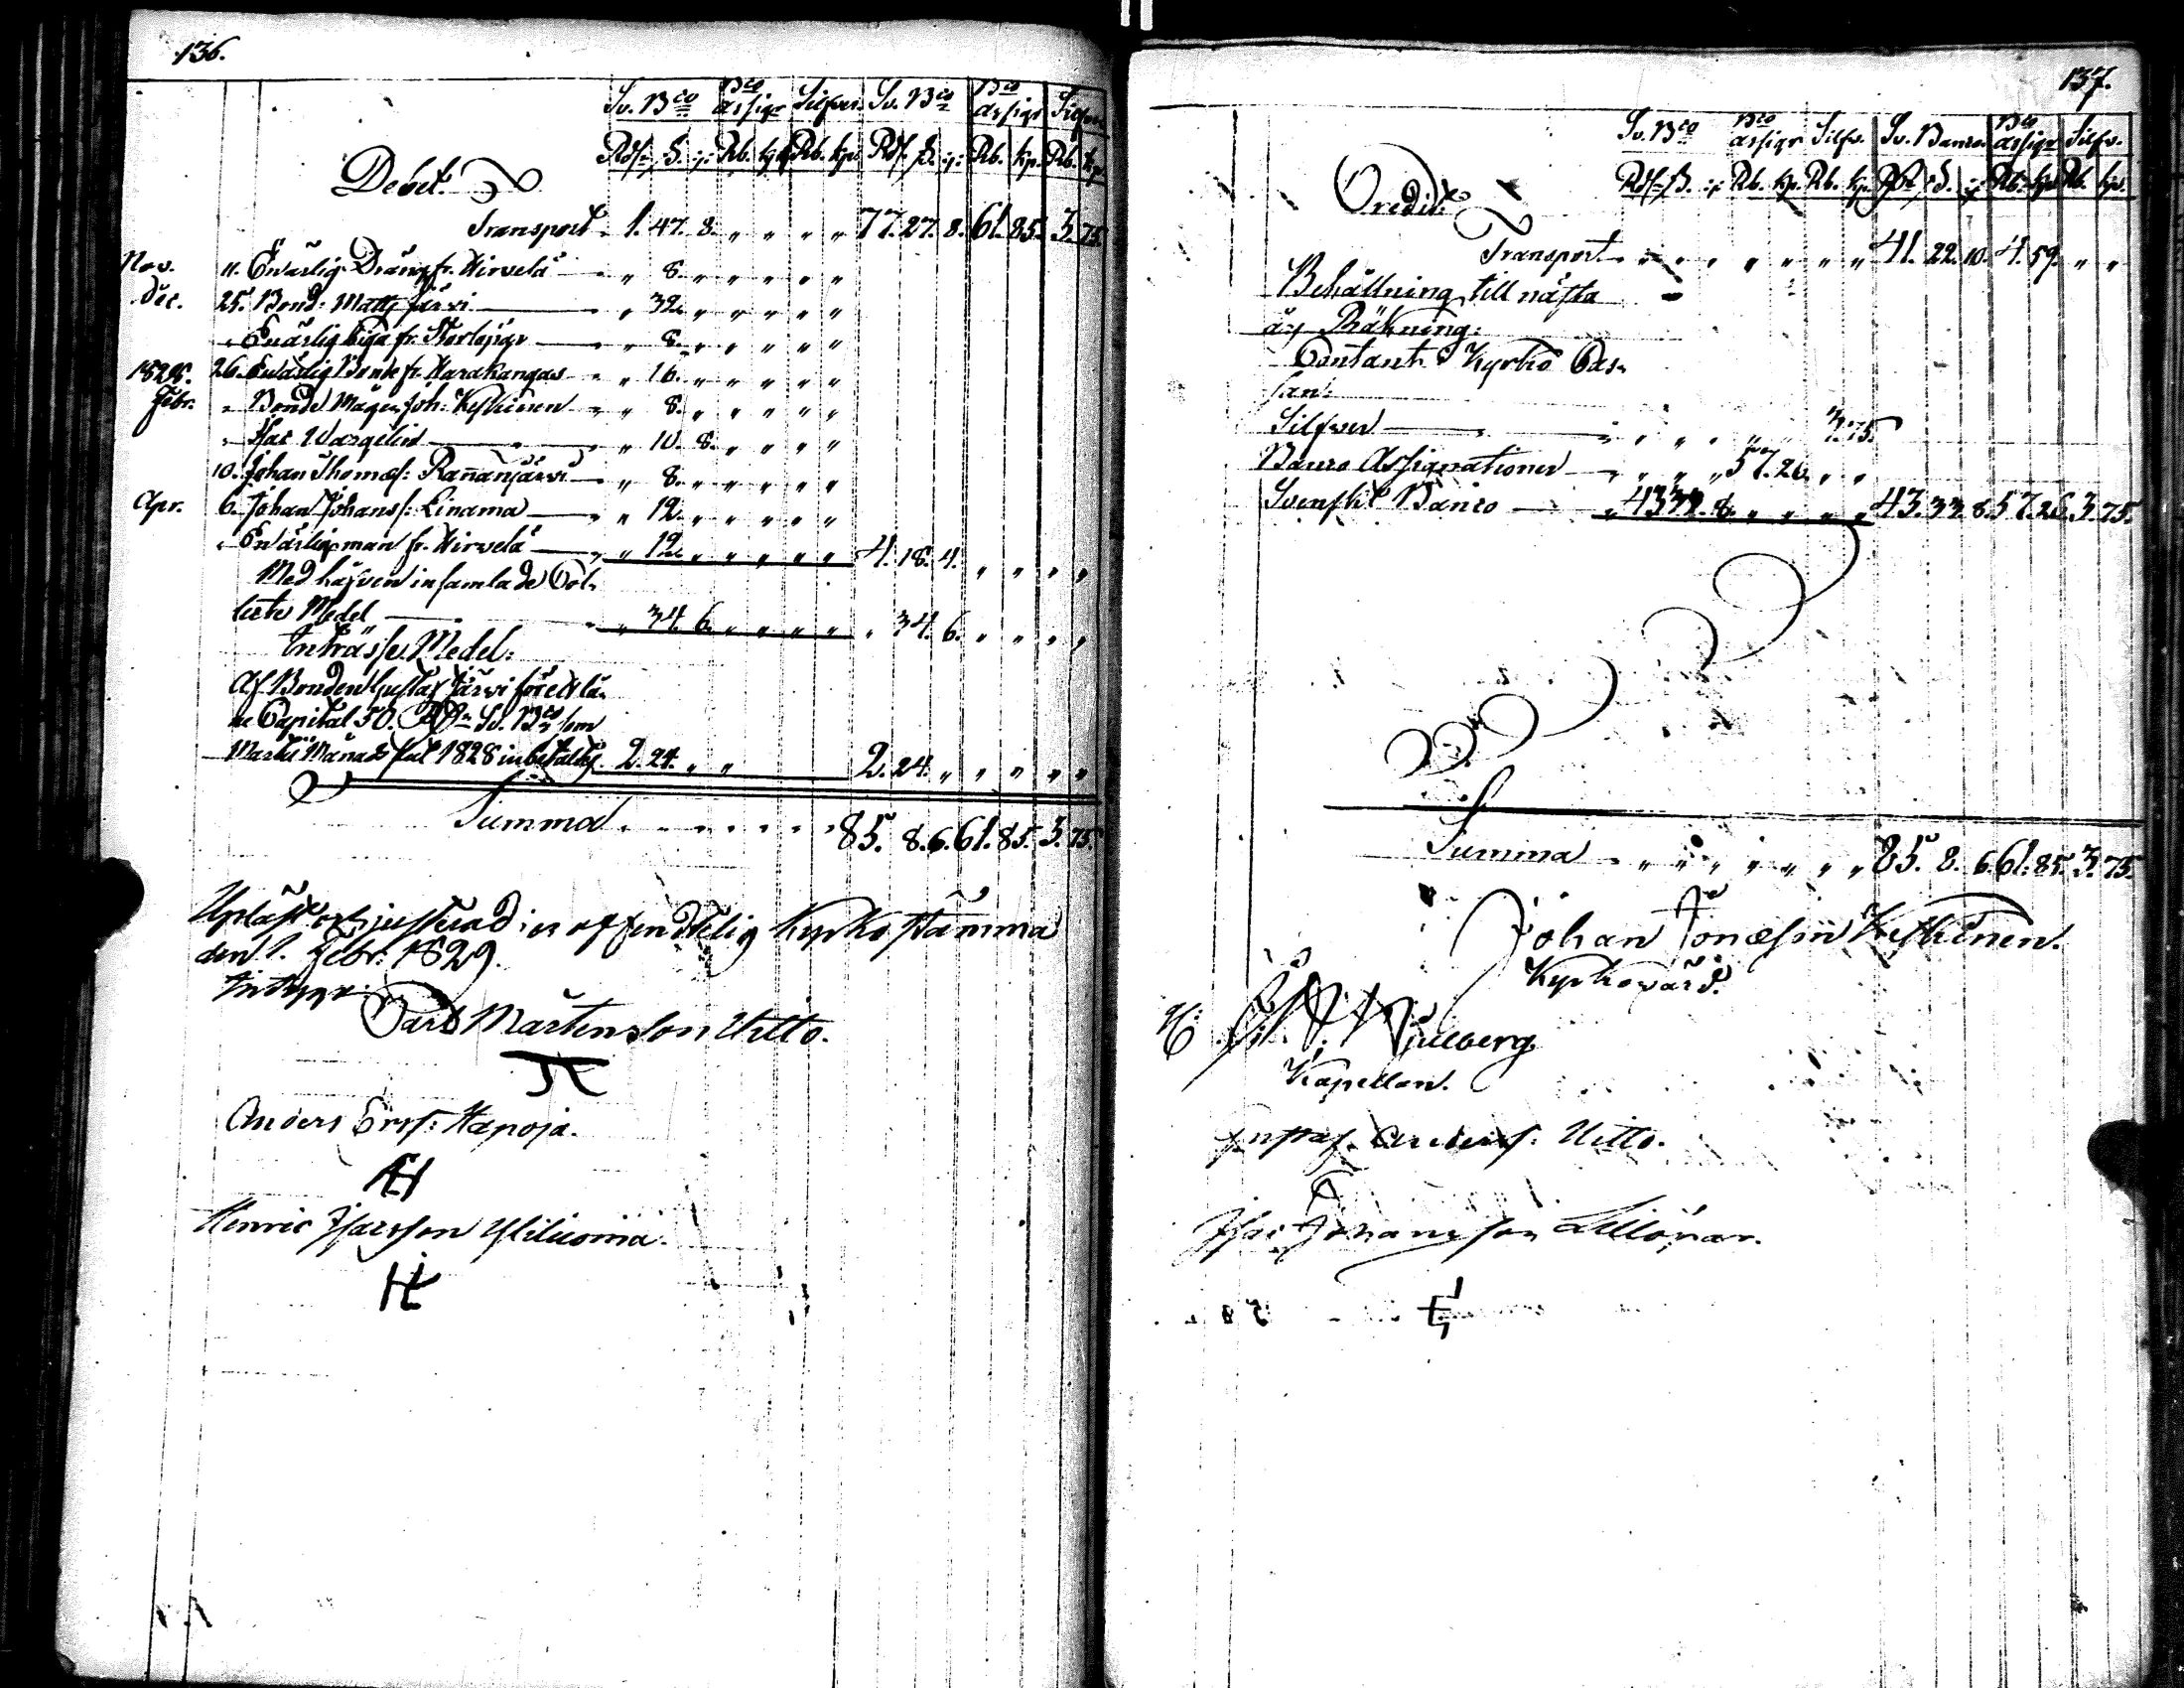 136.
Sv. Bco Bco assigr Silfver. Sv. Bco Bco assigr Silfver
Rdr ß. rp Rb. kp. Rb. kp. Rdr ß. rp Rb. kp. Rb. kp
Debet.
Transport 1. 47. 8. " " " " 77. 27. 8. 61. 85. 3. 75.
Nov. 11. Enärlig Dräng fr. Hirvelä " 8. " " " " "
Dec. 25. Bond: Matts Järvi " 32. " " " " "
" Enärlig Piga fr. " 8. " " " " "
1828. 26. Enärlig Bonde fr. Harakangas " 16. " " " " "
Febr. " Bonde Mågen Joh: Keskinen " 8. " " " " "
" Isac Wargelin " 10. 8. " " " "
10. Johan Thomæs: Rañanjärvi " 8. " " " " "
Apr. 6. Johan Johans: Linama " 12. " " " " "
" Enärlig man fr. Hirvelä " 12. " " " " " 4. 18. 4. " " " "
Med håfven insamlade Col-
lecte Medel " 34. 6. " " " " " 34. 6. " " " "
Inträsse Medel:
Af Bonden Gustaf Järvi för ett lå-
ne Capital 50. Rdr Sv. Bco som
Martii Månad sistl 1828 inbetaltes 2. 24. " " 2. 24. " " " " "
Summa 85. 8. 6. 61. 85. 3. 75.
Upläst och justerad i offendtelig Kyrko stämma
den 1. Febr. 1829.
Intyga:
Carl Mårtensson Uitto.
Anders Erss: Hapoja.
AH
Henric Isacsson Ylilioma.
H
137.
Sv. Bco Bco assigr Silfv. Sv. Banco. Bco assigr Silfv.
Rdr ß. rp Rb. kp. Rb. kp. Rdr ß. rp Rb. kp. Rb. kp.
Credit.
Transport " " " " " " " 41. 22. 10. 4. 59. " "
Behållning till nästa
års Räkning:
Contant i Kyrko Cas-
san:
Silfver " " " " " 3. 75.
Banco Assignationer " " " 57. 26. " "
Svenskt Banco " 43. 33. 8. " " " " 43. 33. 8. 57. 26. 3. 75.
Summa " " " " " " " 85. 8. 6. 61. 85. 3. 75.
Johan Jonæson Keskinen.
Kyrkovärd.
Kapellan.
Gustaf Anders: Uitto.
Isac Johansson